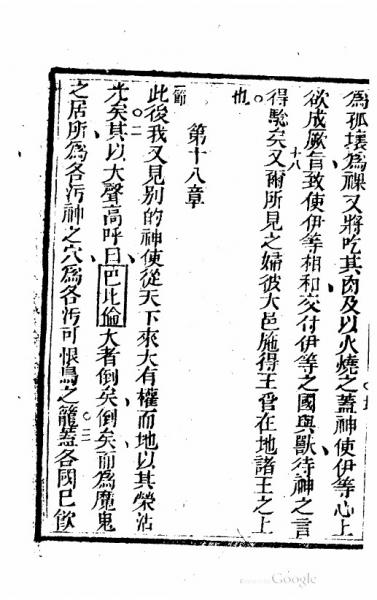 為孤壞為祼又將吃其肉及以火燒之蓋神使伊等心上
欲成厥旨致使伊等相和交付伊等之國與獸待神之言
得驗矣又爾所見之婦彼大邑施得王管在地諸王之上
十八
也
第十八章
一節
此後我又見別的神使從天下來大有權而地以其榮沾
二
光矣其以大聲高呼曰巴比倫大者倒矣倒矣而為魔鬼
之居所為各汚神之穴為各汚可恨鳥之籠蓋各國已飲
三
Google